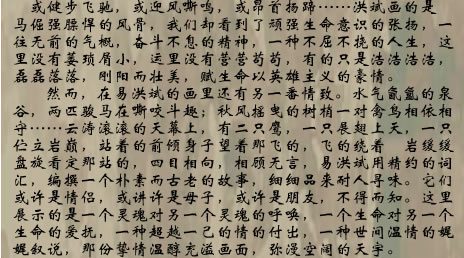 或健步飞驰，或迎风嘶鸣，或昂首扬蹄……洪斌画的是
马倔强膘悍的风骨，我们却看到了顽强生命意识的张扬，一
往无前的气概，奋斗不息的精神，一种不屈不挠的人生，这
里没有萎琐屑小，运里没有营营苟苟，有的只是浩浩浩浩，
磊磊落落，刚阳而壮美，赋生命以英雄主义的豪情。
然而，在易洪斌的画里还有另一番情致。水气氤氲的泉
谷，两匹骏马在嘶咬斗趣；秋风摇曳的树梢一对禽鸟相依相
守……云涛滚滚的天幕上，有二只鹰，一只展翅上天，一只
伫立岩巅，站着的前倾身子望着那飞的，飞的绕着 岩缓缓
盘旋看定那站的，四目相向，相顾无言，易洪斌用精约的词
汇，编撰一个朴素而古老的故事，细细品来耐人寻味。它们
或许是情侣，或讲许是母子，或许是朋友，不得而知。这里
展示的是一个灵魂对另一个灵魂的呼唤，一个生命对另一个
生命的爱抚，一种超越一己的情的付出，一种世间温情的娓
娓叙说，那份挚情温醇充溢画面，弥漫空阔的天宇。